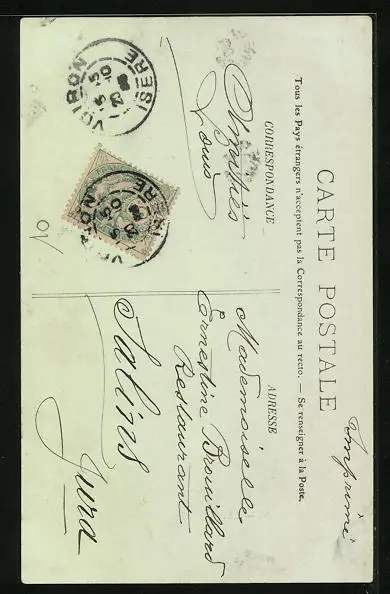 CARTE POSTALE
Tous les Pays étrangers n'acceptent pas la Correspondance au recto. — Se renseigner à la Poste.
CORRESPONDANCE
ADRESSE
Imprimé
Louis
Mademoiselle
Ernestine Brouillard
Restaurant
Salins
Jura
VOIRON
ISERE
5 50
20 -10
VOIRON
ISERE